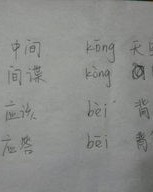 中间 kōng 天
间谍 kòng
应该 bèi 背
应答 bēi 背